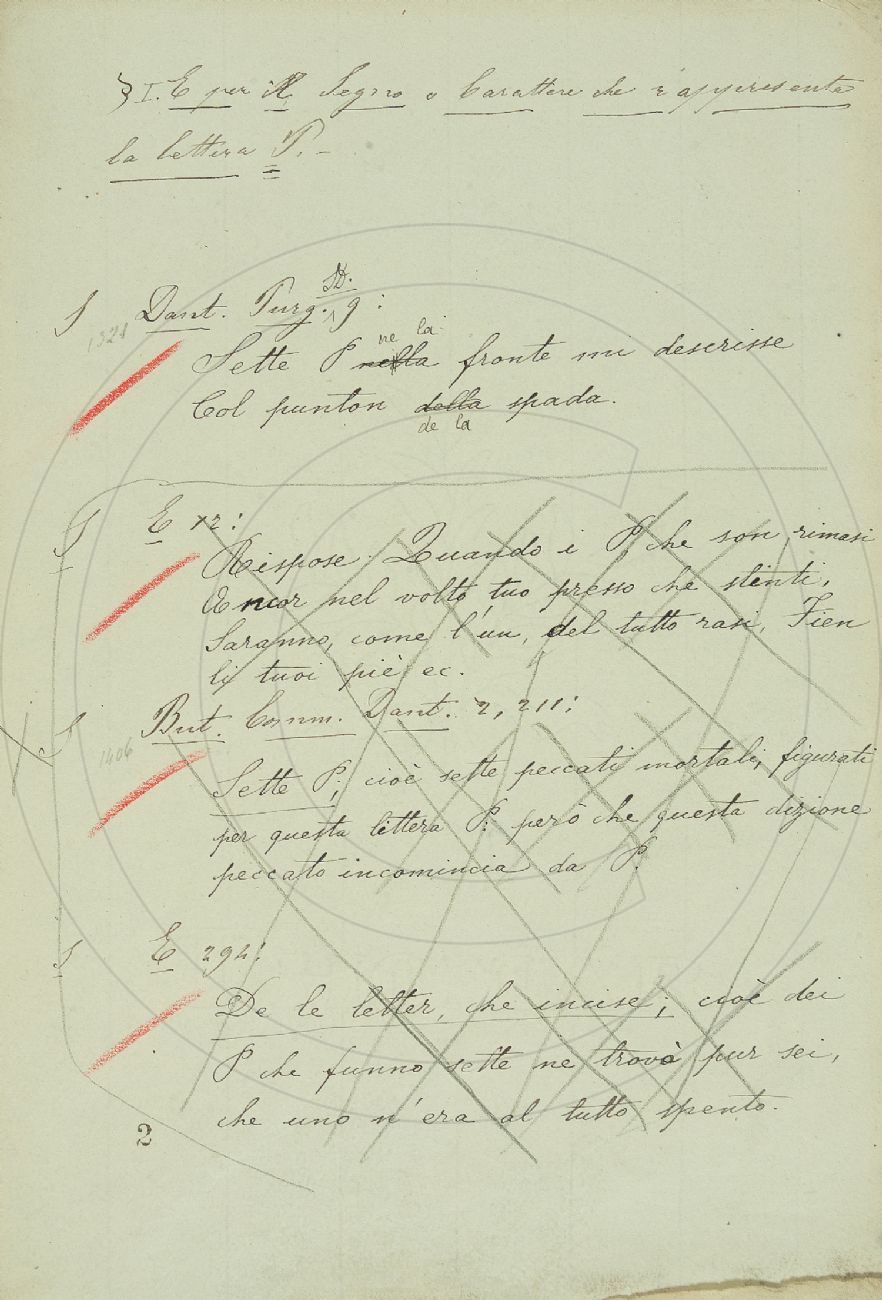 § I. E per il Segno o Carattere che rappresenta
la lettera P. –
D.
S Dant. Purg. 9:
1321
ne la
Sette P nella fronte mi descrisse
Col punton della spada.
de la
S E 12:
Rispose: Quando i P, che son rimasi
Ancor nel volto tuo presso che stinti,
Saranno, come l'un, del tutto rasi, Fien
li tuoi piè ec.
S But. Comm. Dant. 2, 211:
1406
Sette P, cioè sette peccati mortali, figurati
per questa lettera P: però che questa dizione
peccato incomincia da P.
S E 292:
De le letter, che incise; cioè dei
P che funno sette ne trovò pur sei,
che uno n'era al tutto spento.
2